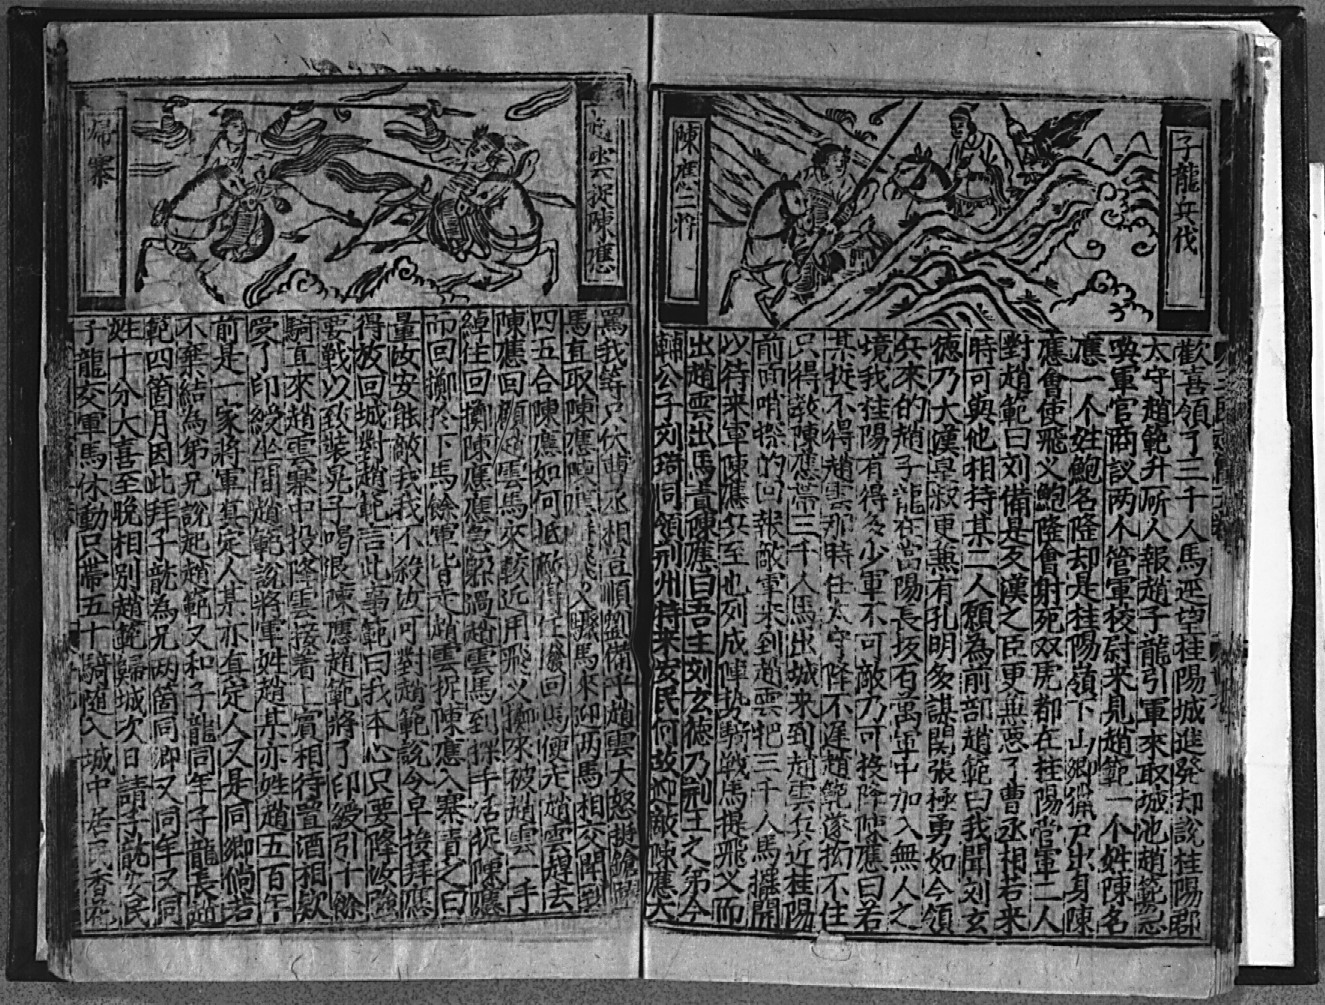 子龍兵伐
陳應二將
歡喜領了三千人馬逕望桂陽城進發却說桂陽郡
太守趙範升所人報趙子龍引軍來取城池趙範急
喚軍官商議两个管軍校尉來見趙範一个姓陳名
應一个姓鮑名隆却是桂陽嶺下山鄉獵戶出身陳
應會使飛义鮑隆會射死双虎都在桂陽管軍二人
對趙範曰刘備是反漢之臣更兼惡了曹丞相若來
時可與他相持某二人願為前部趙範曰我聞刘玄
德乃大漢皇叔更兼有孔明多謀関張極勇如今領
兵來的趙子龍在當陽長坂百萬軍中如入無人之
境我桂陽有得多少軍不可敵乃可投降陳應曰若
某捉不得趙雲那時任太守降不遲趙範遂拗不住
只得教陳應帶三千人馬出城來到趙雲兵近桂陽
前面哨探的回報敵軍來到趙雲把三千人馬擺開
以待來軍陳應兵至也列成陣势騎戦馬提飛义而
出趙雲出馬責陳應曰吾主刘玄德乃荆王之弟今
輔公子刘琦同領荆州特來安民何故迎敵陳應大
趙雲捉陳應
歸寨
罵我等只伏曹丞相豈順劉備乎趙雲大怒挺鎗
馬直取陳應陳應飛义驟馬來迎两馬相交閗到
四五合陳應如何抵敵得住撥回馬便走趙雲趕去
陳應回顧趙雲馬來較近用飛义擲來被趙雲一手
綽住回擲陳應應急躲過趙雲馬到探手活捉陳應
而回擲於下馬餘軍皆走趙雲折陳應入寨責之曰
量汝安能敵我我不殺汝可對趙範說令早投拜應
得放回城對趙範一言此事範曰我本心只要降汝強
要戰以致裝晃子喝退陳應趙範將了印綬引十餘
騎直來趙雲寨中投降雲接着上賓相待置酒相欵
受了印綬坐間趙範說將軍姓趙某亦姓趙五百年
前是一家將軍真定人某亦真定人又是同鄉倘若
不棄結為弟兄說起趙範又和子龍同年子龍長趙
範四箇月因此拜子龍為兄两箇同鄉又同年又同
姓十分大喜至晚相別趙範歸城次日請子龍安民
子龍交軍馬休動只帶五十騎隨入城中居民香花